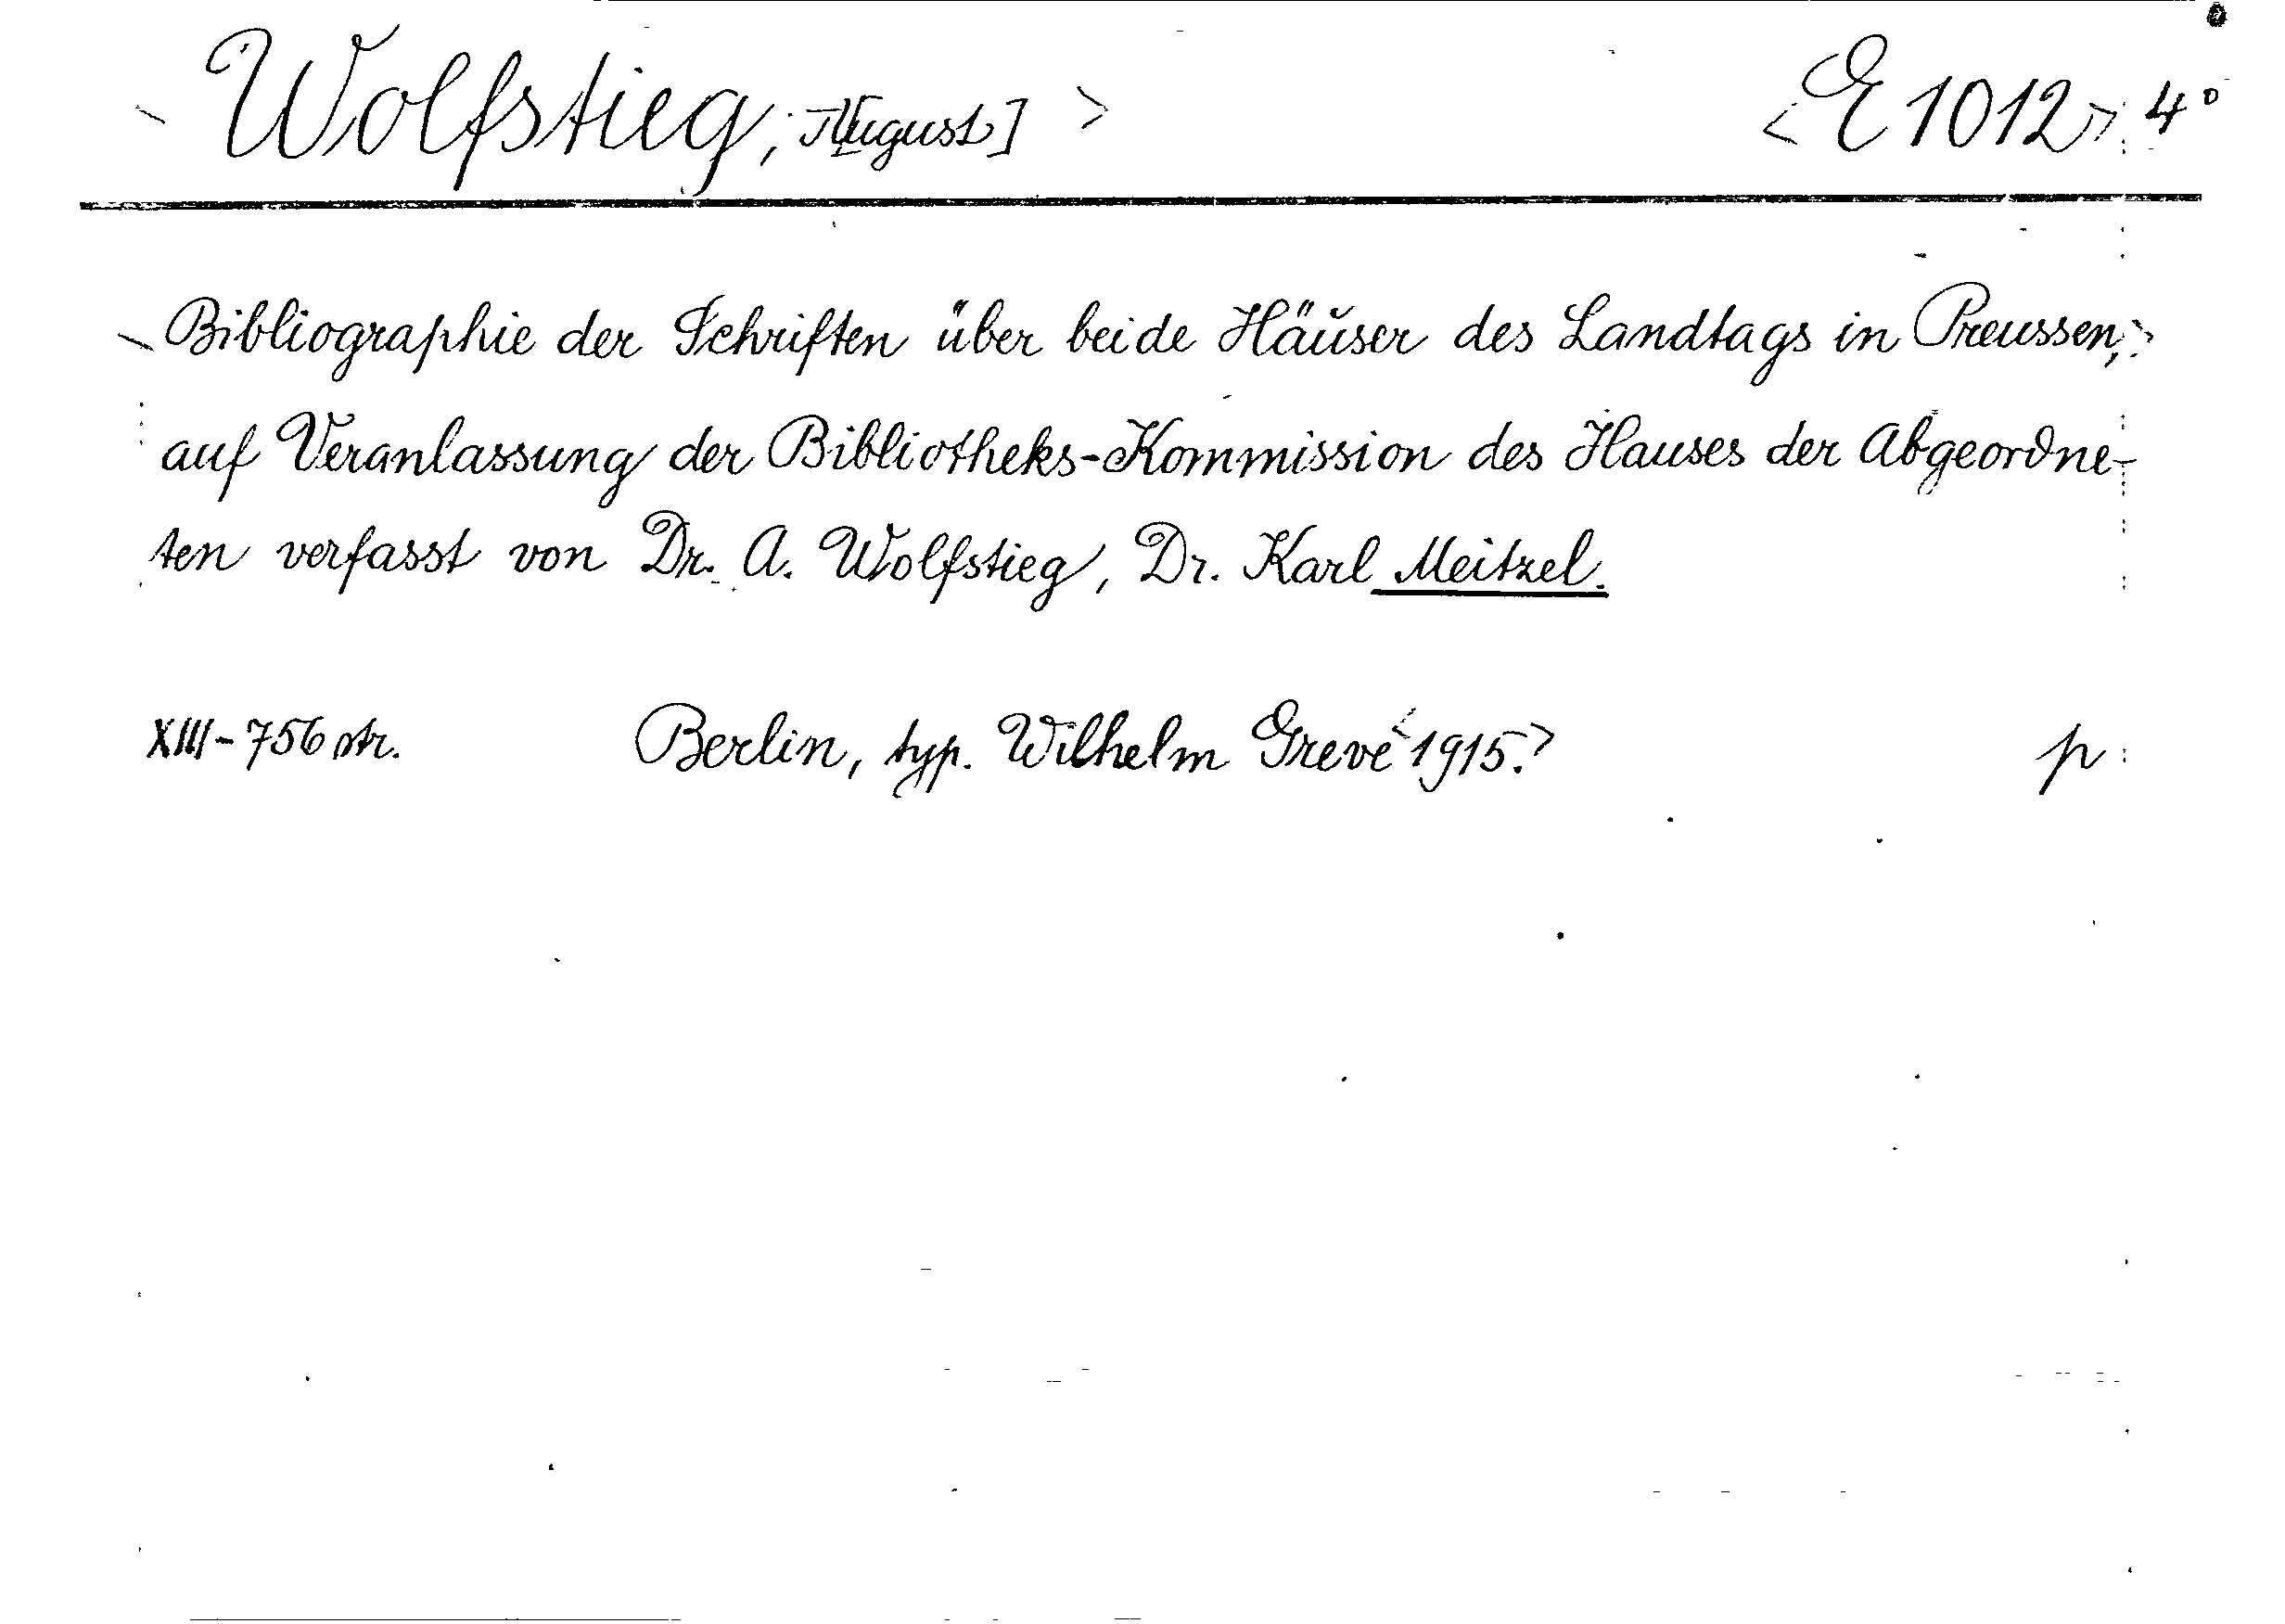 <Wolfstieg, A[ugust]> <E 1012> 4°
<Bibliographie der Schriften über beide Häuser des Landtags in Preussen,>
auf Veranlassung der Bibliotheks-Kommission des Hauses der Abgeordne-
ten verfasst von Dr. A. Wolfstieg, Dr. Karl Meitzel.
XIII-756 str. Berlin, typ. Wilhelm Greve <1915.> p